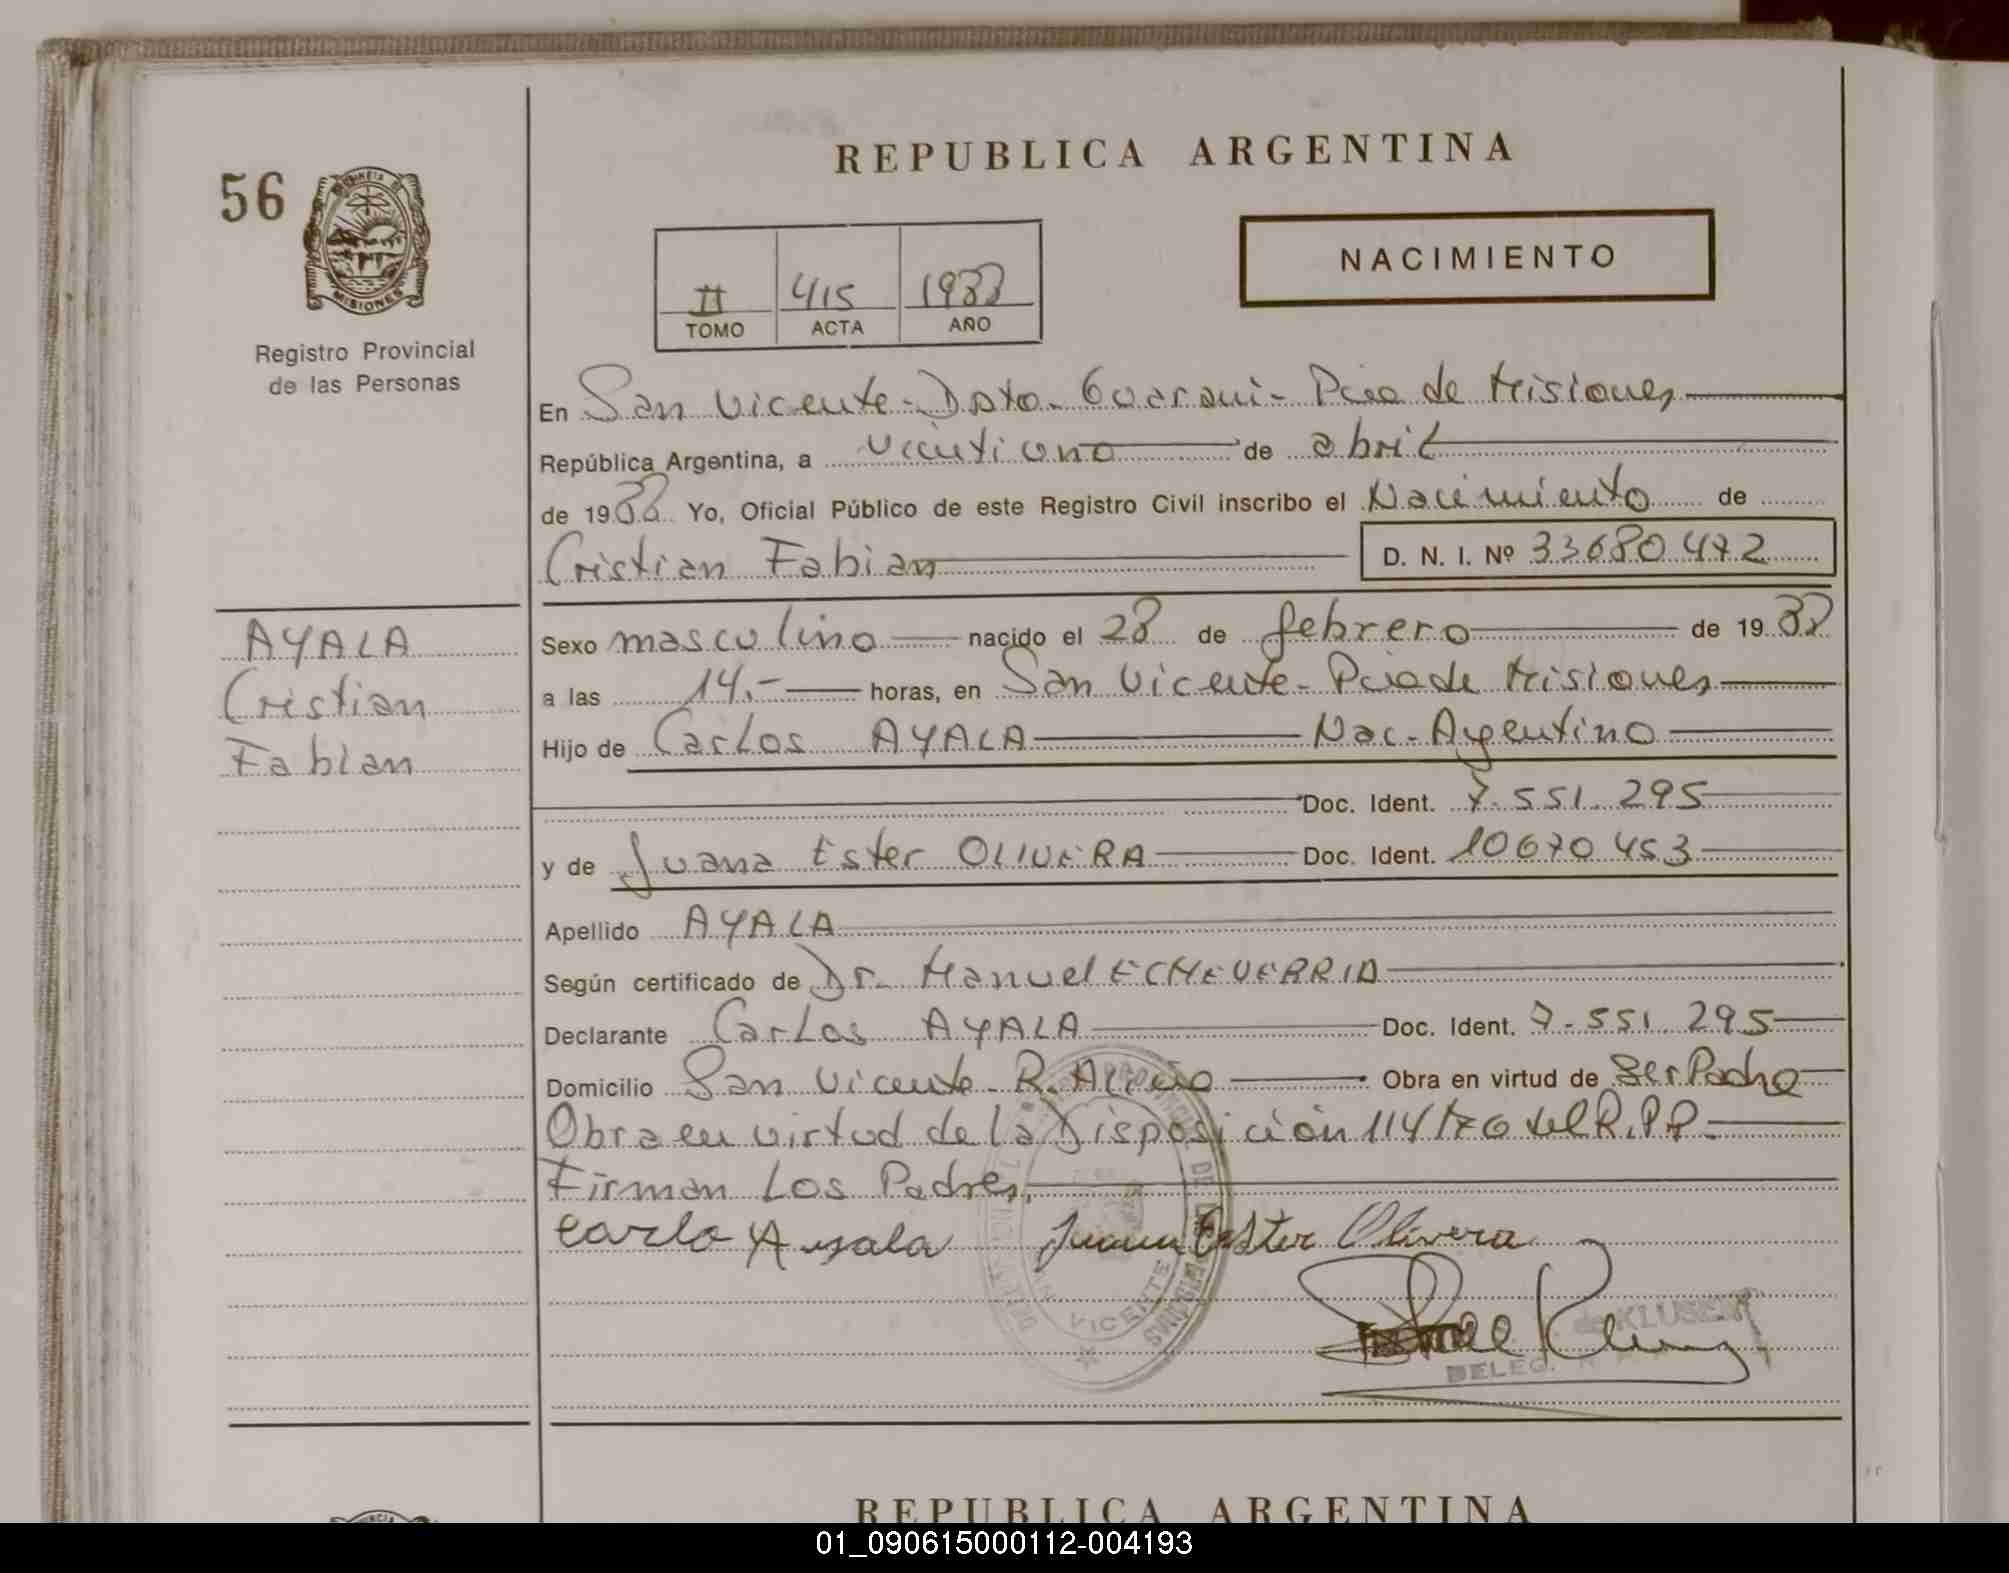 REPUBLICA ARGENTINA
56
PROVINCIA DE
MISIONES
Registro Provincial
de las Personas
NACIMIENTO
II 415 1988
TOMO ACTA AÑO
En San Vicente - Dpto. Guarani - Pcia de Misiones
República Argentina, a veintiuno de abril
de 1988 Yo, Oficial Público de este Registro Civil inscribo el Nacimiento de
Cristian Fabian D. N. I. Nº 33680472
AYALA
Cristian
Fabian
Sexo masculino nacido el 28 de febrero de 1988
a las 14.- horas, en San Vicente - Pcia de Misiones
Hijo de Carlos AYALA Nac. Argentino
Doc. Ident. 7.551.295
y de Juana Ester OLIVERA Doc. Ident. 10670453
Apellido AYALA
Según certificado de Dr. Manuel ECHEVERRIA
Declarante Carlos AYALA Doc. Ident. 7.551.295
Domicilio San Vicente - R. Obra en virtud de Ser Padre
Obra en virtud de la Disposición 114/ del R.P.P.
Firman Los Padres.
Carlo Ayala Juana Ester Olivera
de KLUSEN
DELEG.
VICENTE
REPUBLICA ARGENTINA
01_090615000112-004193